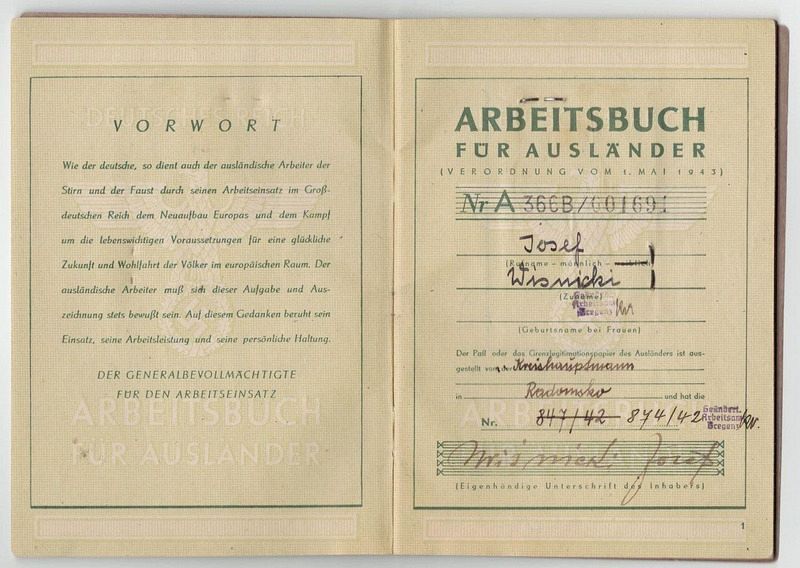 DEUTSCHES REICH
VORWORT
Wie der deutsche, so dient auch der ausländische Arbeiter der
Stirn und der Faust durch seinen Arbeitseinsatz im Groß-
deutschen Reich dem Neuaufbau Europas und dem Kampf
um die lebenswichtigen Voraussetzungen für eine glückliche
Zukunft und Wohlfahrt der Völker im europäischen Raum. Der
ausländische Arbeiter muß sich dieser Aufgabe und Aus-
zeichnung stets bewußt sein. Auf diesem Gedanken beruht sein
Einsatz, seine Arbeitsleistung und seine persönliche Haltung.
DER GENERALBEVOLLMÄCHTIGTE
FÜR DEN ARBEITSEINSATZ
ARBEITSBUCH
FÜR AUSLÄNDER
ARBEITSBUCH
FÜR AUSLÄNDER
(VERORDNUNG VOM 1. MAI 1943)
Nr A 366B/001691
Josef
(Rufname - männlich - weiblich)
Wisnicki
(Zuname)
Geändert
Arbeitsamt
Bregenz
(Geburtsname bei Frauen)
Der Paß oder das Grenzlegitimationspapier des Ausländers ist aus-
gestellt von der Kreishauptmann
in Radomsko und hat die
Nr. 847/42 874/42 Geändert.
Arbeitsamt
Bregenz
Wiśnicki Josef
(Eigenhändige Unterschrift des Inhabers)
1